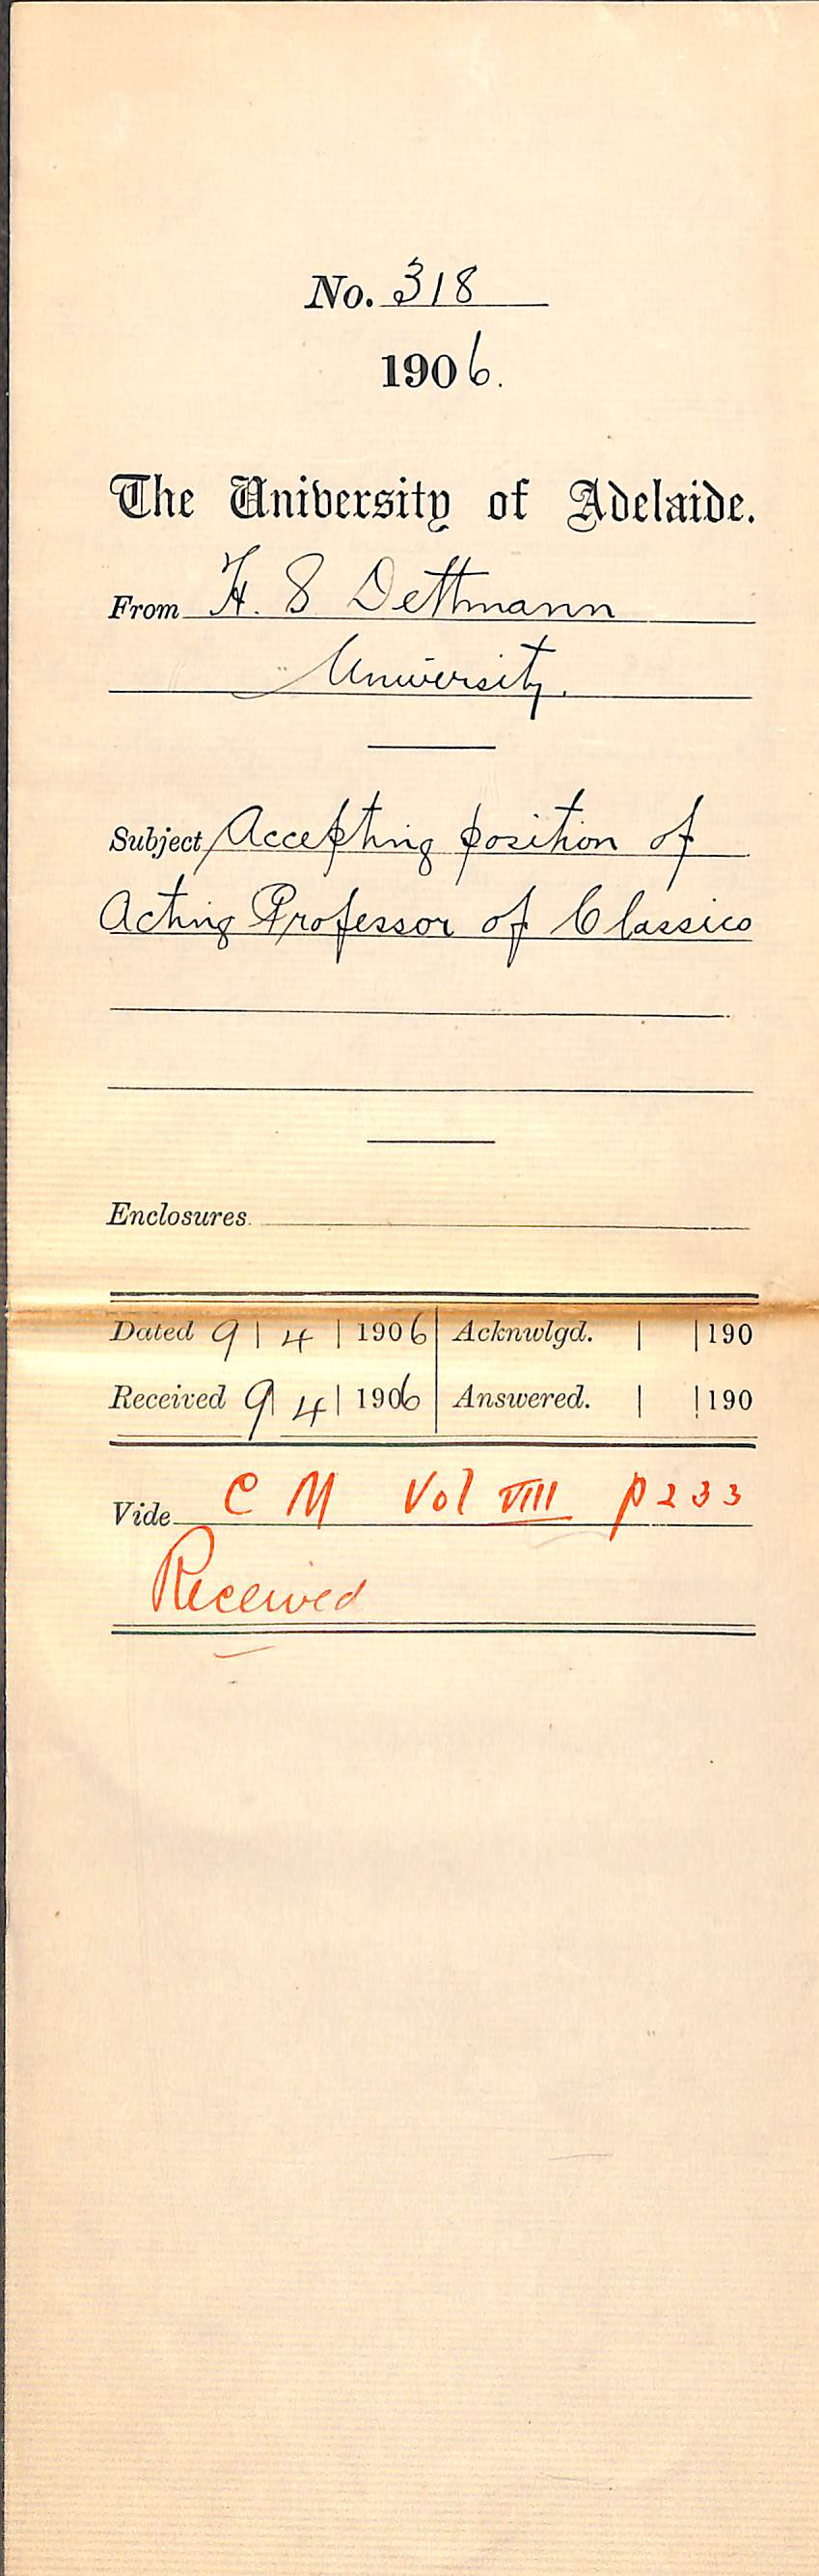 No. 318
1906.
The University of Adelaide.
From H. S Dettmann
University.
Subject Accepting position of
Acting Professor of Classics
Enclosures
Dated 9 | 4 | 1906 Acknwlgd. | | 190
Received 9 | 4 | 1906 Answered. | | 190
Vide C M Vol VIII p 233
Received